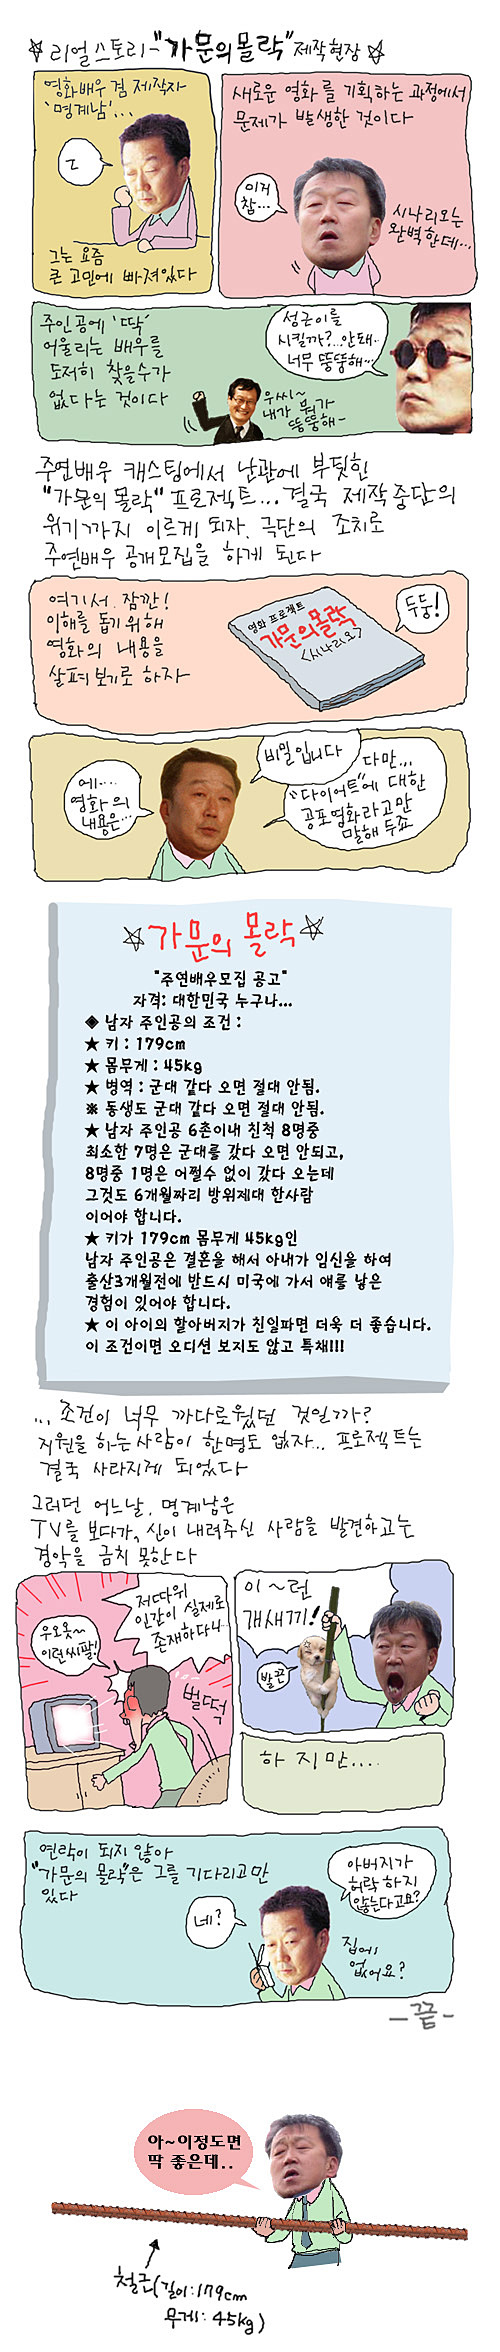 ☆ 리얼스토리-"가문의몰락" 제작현장 ☆
영화배우 겸 제작자
'명계남'...
ㄷ
그는 요즘
큰 고민에 빠져있다
새로운 영화를 기획하는 과정에서
문제가 발생한 것이다
이거
참...
시나리오는
완벽한데...
주인공에 '딱'
어울리는 배우를
도저히 찾을수가
없다는 것이다
성근이를
시킬까?...안돼..
너무 뚱뚱해...
우씨~
내가 뭐가
뚱뚱해~
주연배우 캐스팅에서 난관에 부딪힌
"가문의 몰락" 프로젝트... 결국 제작중단의
위기까지 이르게 되자. 극단의 조치로
주연배우 공개모집을 하게 된다
여기서. 잠깐!
이해를 돕기위해
영화의 내용을
살펴보기로 하자
영화 프로젝트
가문의몰락
<시나리오>
두둥!
에....
영화의
내용은...
비밀입니다
다만...
"다이어트"에 대한
공포영화라고만
말해 두죠
☆ 가문의 몰락 ☆
"주연배우모집 공고"
자격: 대한민국 누구나...
◈ 남자 주인공의 조건 :
★ 키 : 179cm
★ 몸무게 : 45kg
★ 병역 : 군대 갔다 오면 절대 안됨.
※ 동생도 군대 갔다 오면 절대 안됨.
★ 남자 주인공 6촌이내 친척 8명중
최소한 7명은 군대를 갔다 오면 안되고,
8명중 1명은 어쩔수 없이 갔다 오는데
그것도 6개월짜리 방위제대 한사람
이어야 합니다.
★ 키가 179cm 몸무게 45kg인
남자 주인공은 결혼을 해서 아내가 임신을 하여
출산3개월전에 반드시 미국에 가서 얘를 낳은
경험이 있어야 합니다.
★ 이 아이의 할아버지가 친일파면 더욱 더 좋습니다.
이 조건이면 오디션 보지도 않고 특채!!!
... 조건이 너무 까다로웠던 것일까?
지원을 하는 사람이 한명도 없자... 프로젝트는
결국 사라지게 되었다
그러던 어느날. 명계남은
TV를 보다가, 신이 내려주신 사람을 발견하고는
경악을 금치 못한다
우오옷~
이런씨팔!
저따위
인간이 실제로
존재하다니...
벌떡
이~런
개새끼!
발끈
하 지만....
연락이 되지 않아
"가문의 몰락"은 그를 기다리고만
있다
네?
아버지가
허락하지
않는다고요?
집에
없어요?
-끝-
아~이정도면
딱 좋은데..
철근(길이:179cm
무게: 45kg)